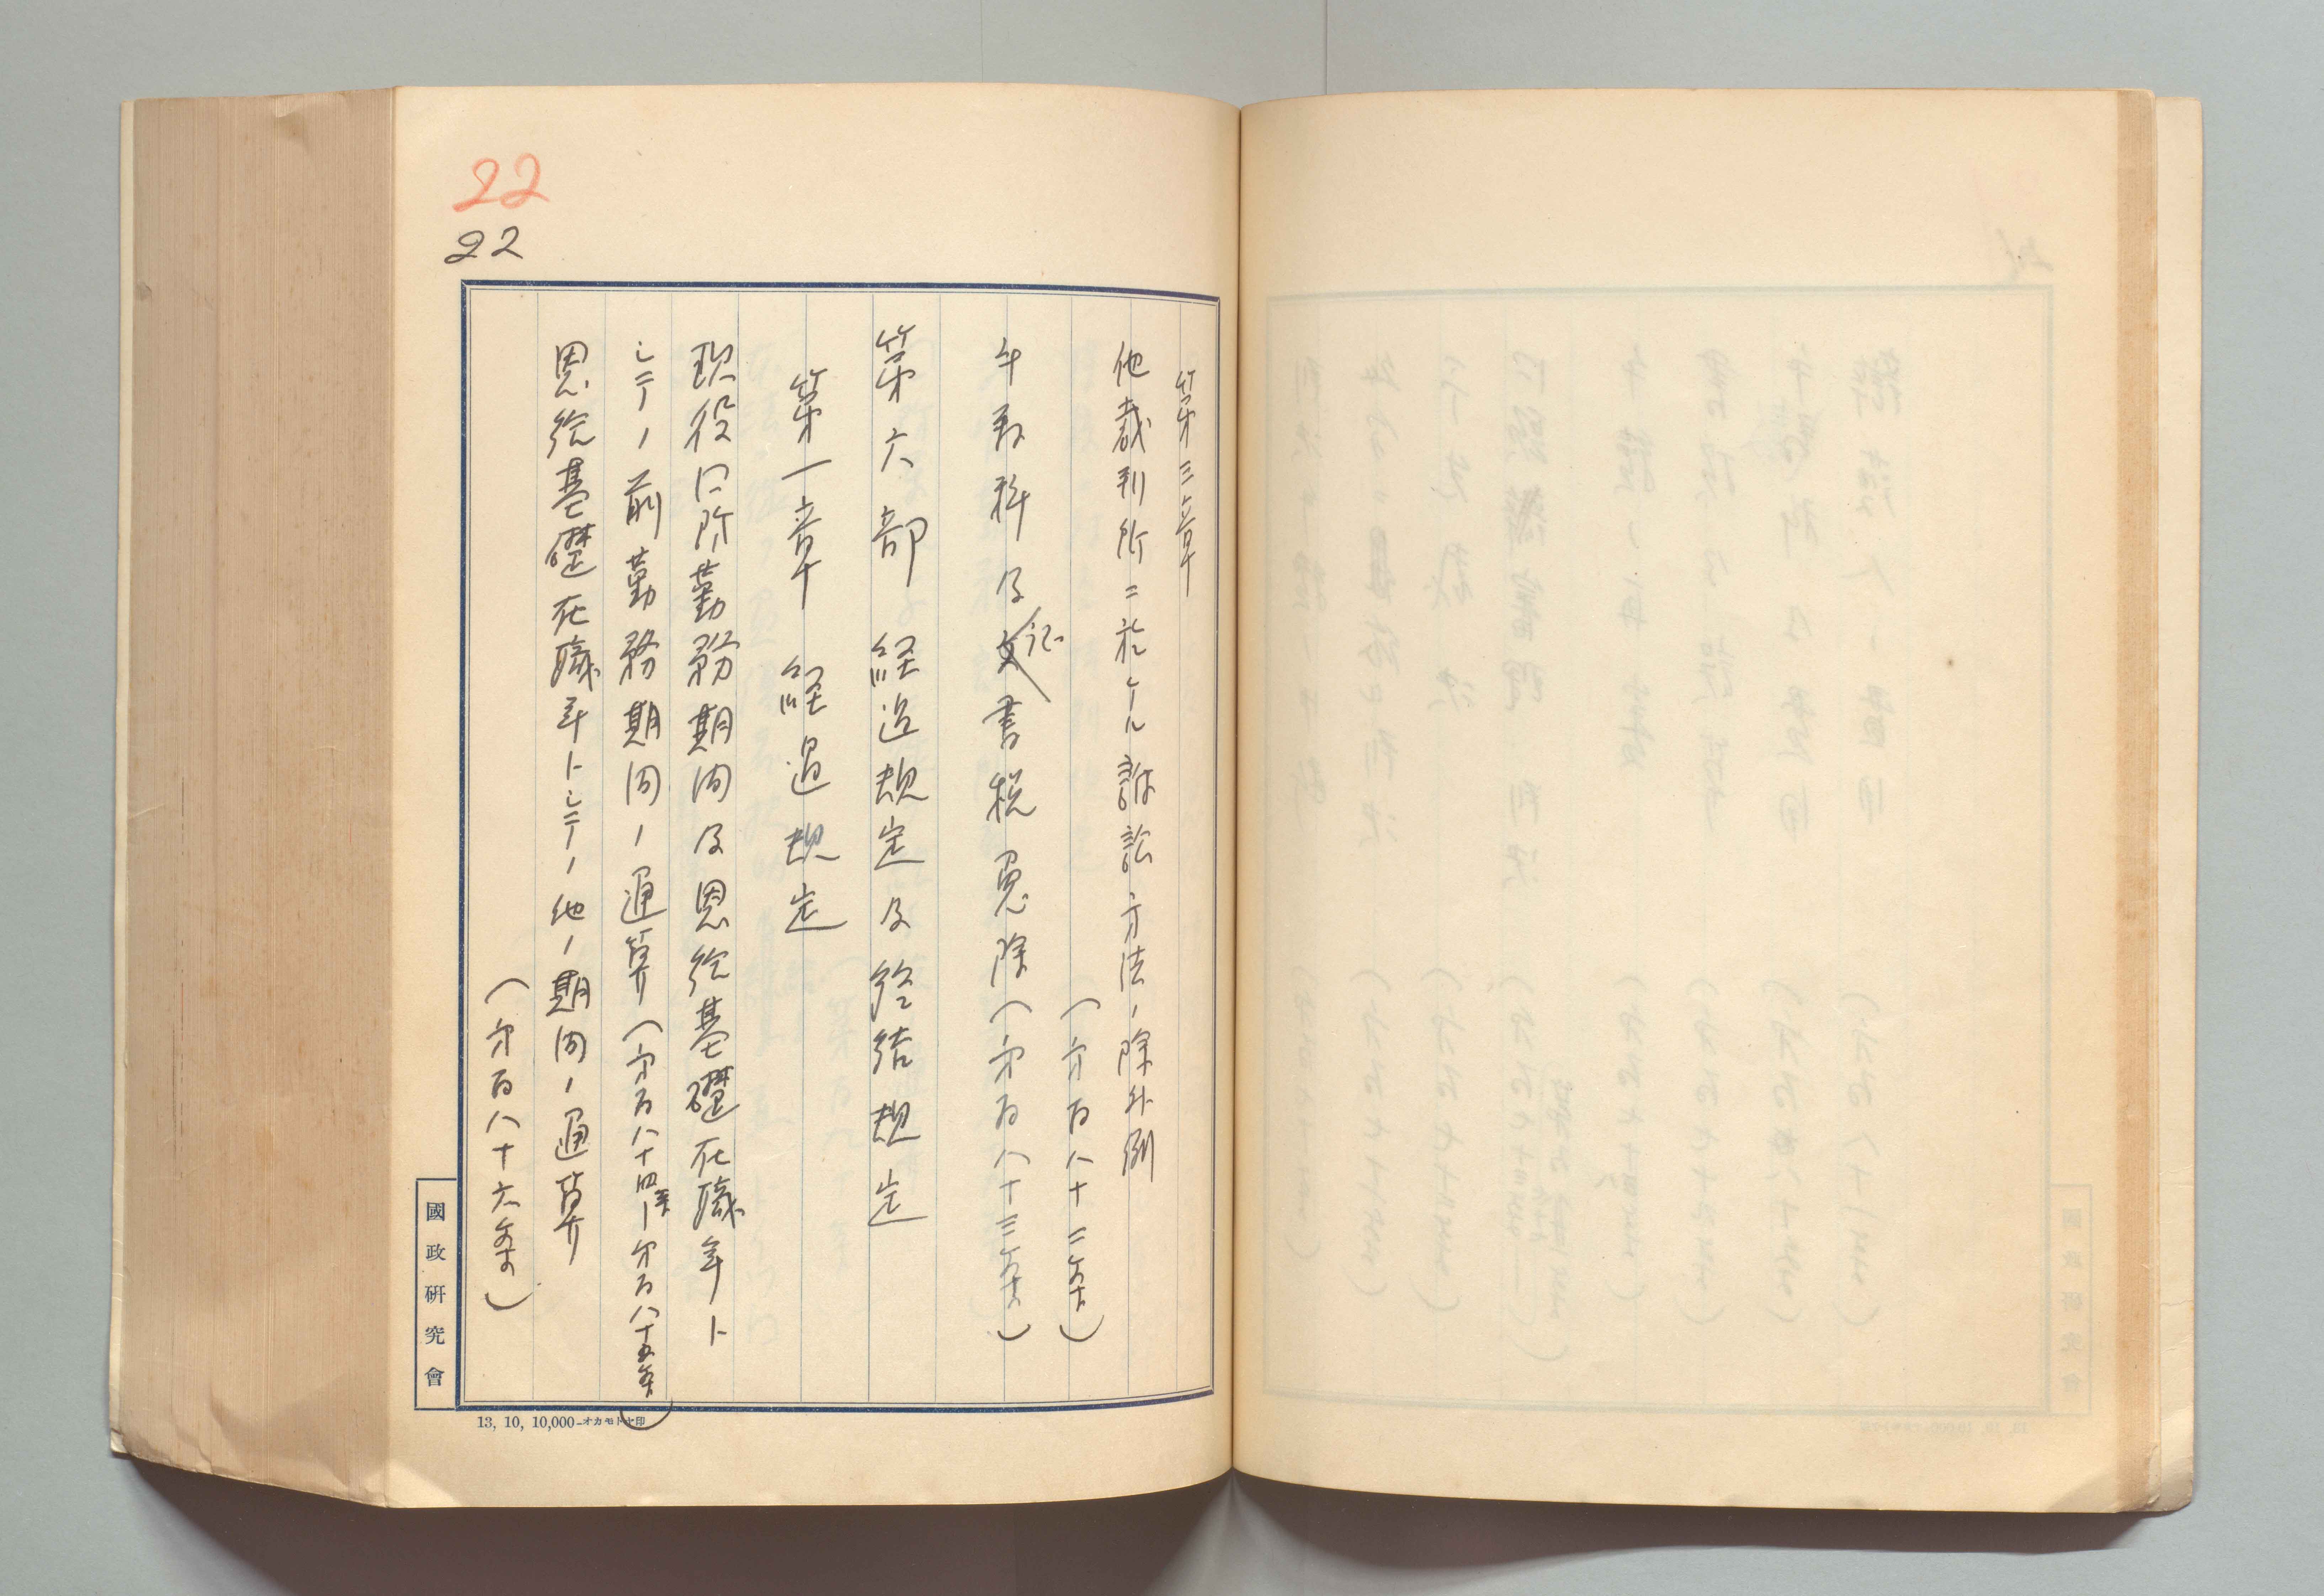 22
22
第三章
他裁判所ニ於ケル訴訟方法ノ除外例
(第百八十二条)
手数料及証書税免除(第百八十三条)
第六部 経過規定及終結規定
第一章 経過規定
現役口所勤務期间及恩給基礎在職年ト
シテノ前勤務期间ノ通算(第百八十四条—第百八十五条)
恩給基礎在職年トシテノ他ノ期间ノ通算
(第百八十六条)
國政研究會
13, 10, 10,000—オカモトヤ印